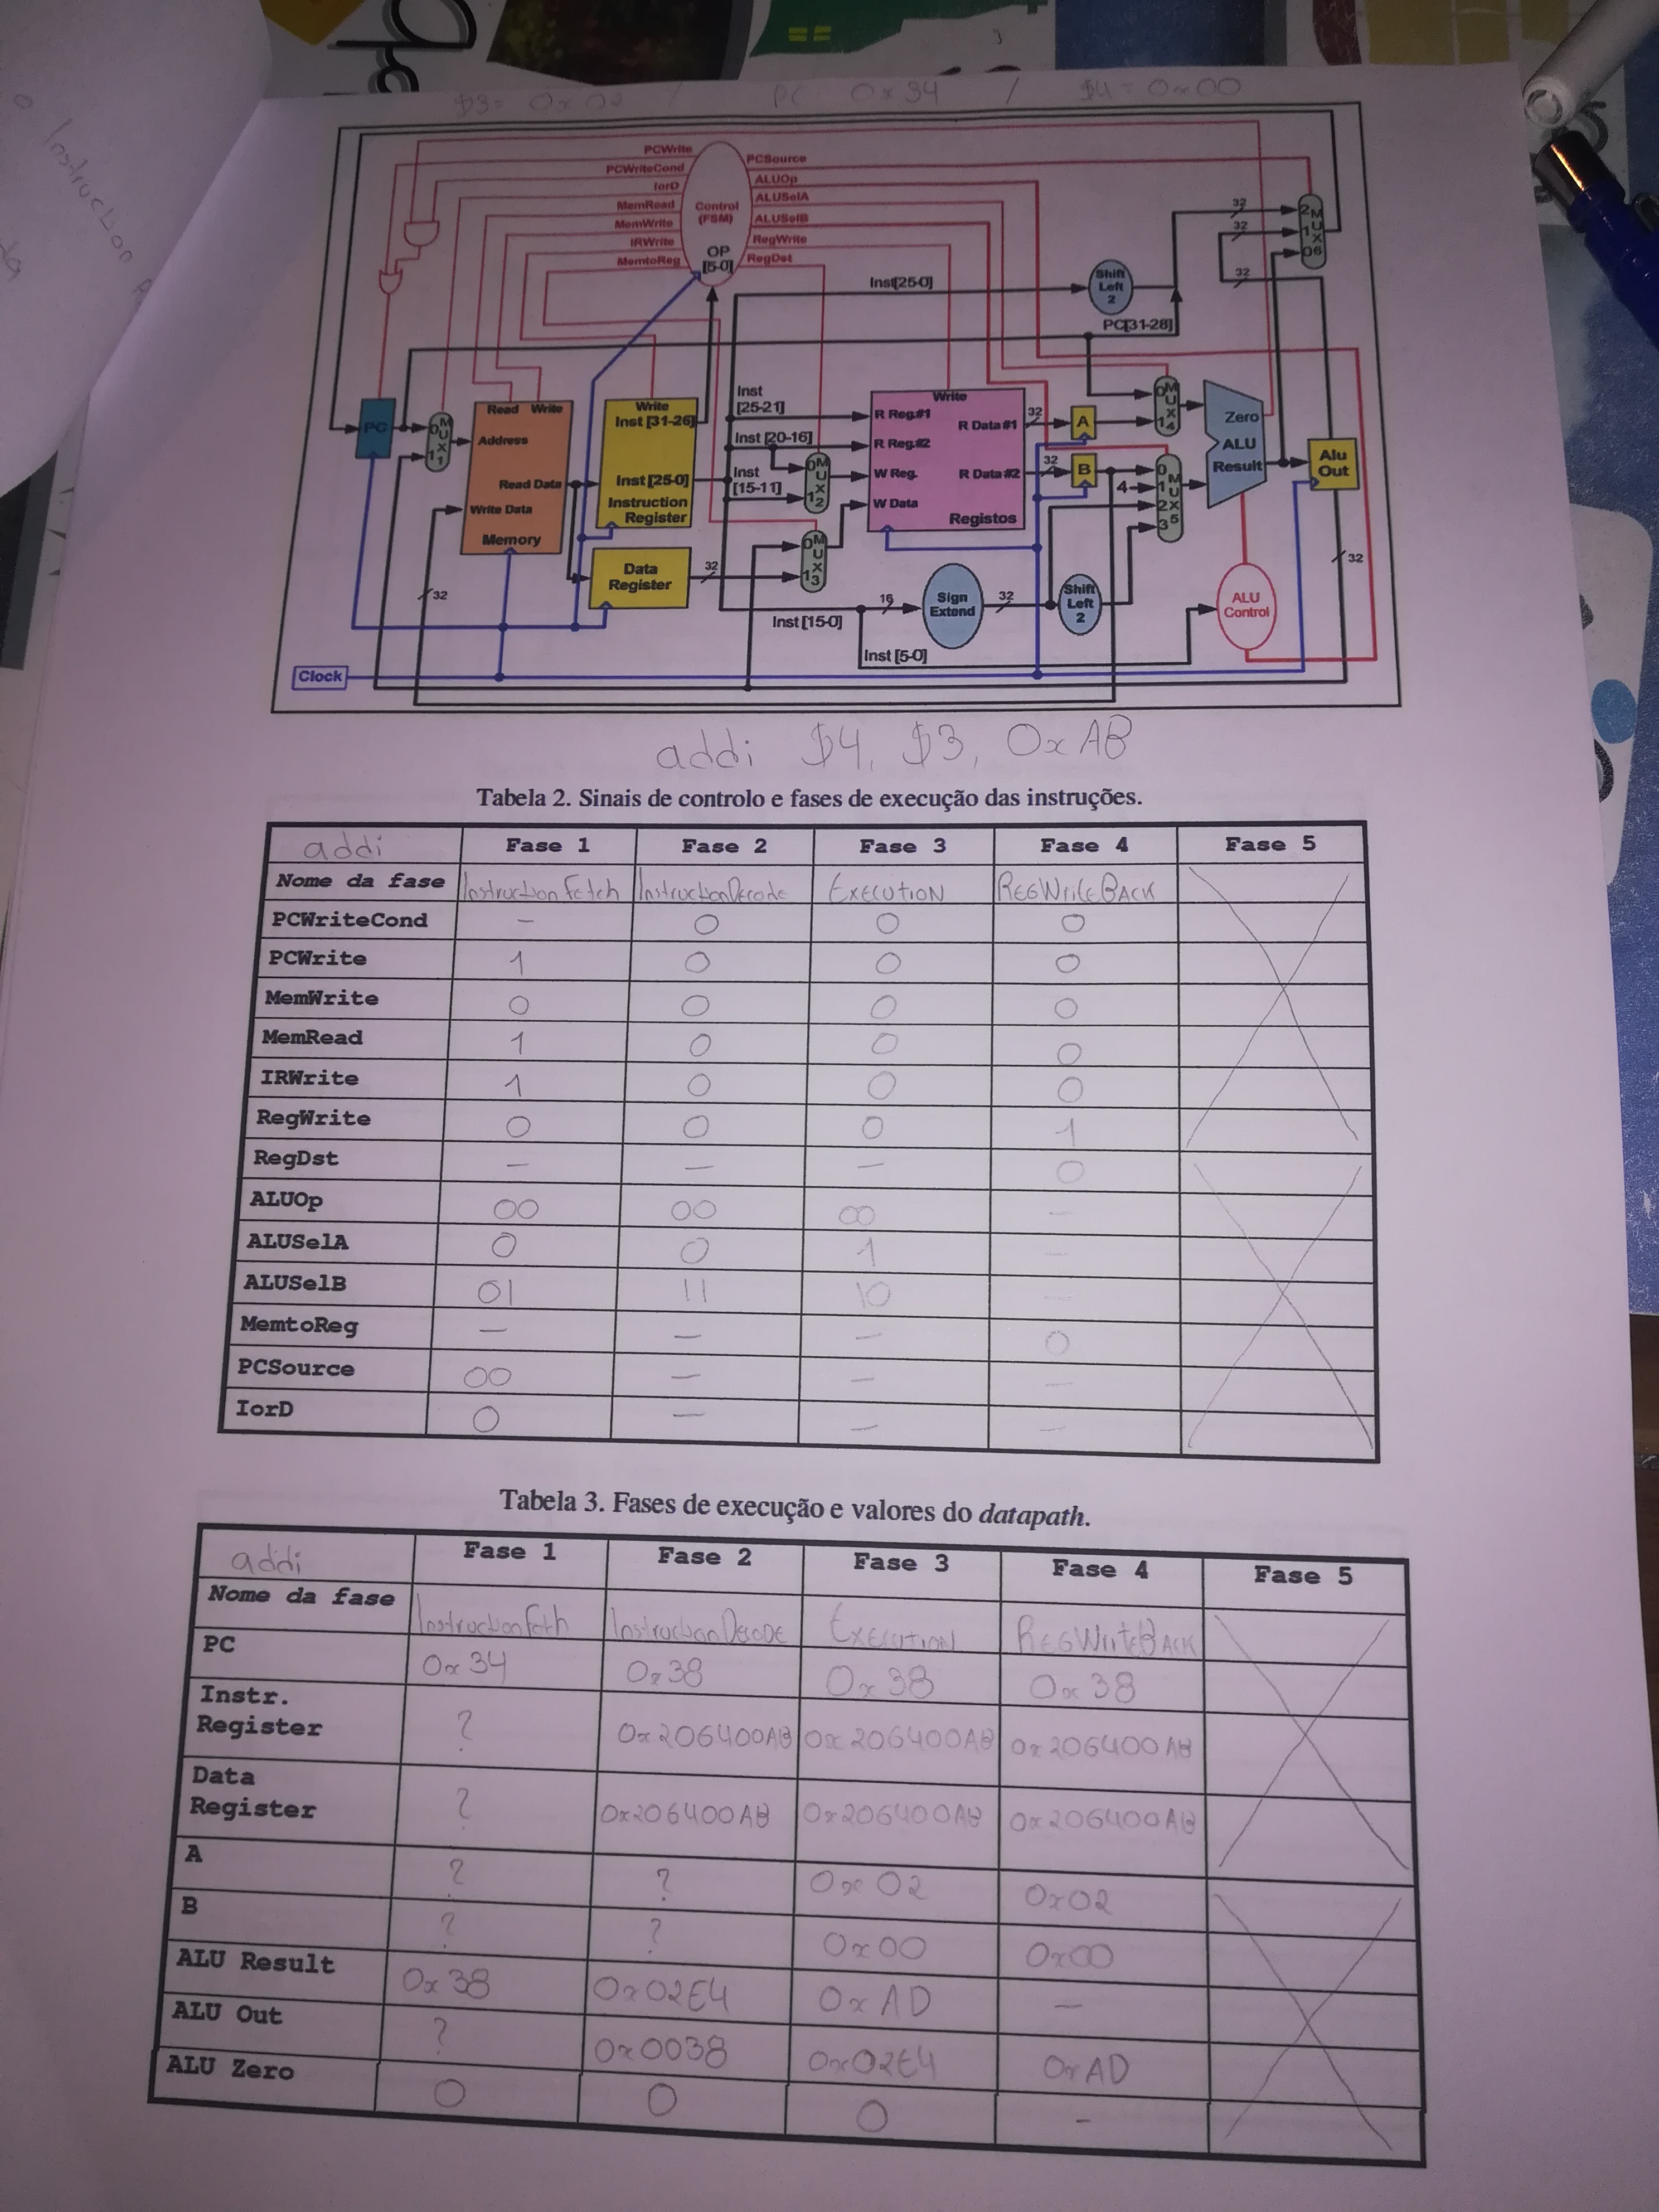 $3 = 0x02 / PC 0x34 / $4 = 0x00
Instruction
PCWrite
PCWriteCond
IorD
MemRead
MemWrite
IRWrite
MemtoReg
Control
(FSM)
OP
[5-0]
PCSource
ALUOp
ALUSelA
ALUSelB
RegWrite
RegDst
Inst[25-0]
Shift
Left
2
PC[31-28]
32
32
32
2 M
1 U
X
0 6
PC
0 M
U
X
1 1
Read Write
Address
Read Data
Write Data
Memory
Write
Inst [31-26]
Inst [25-0]
Instruction
Register
Data
Register
32
Inst
[25-21]
Inst [20-16]
Inst
[15-11]
0 M
U
X
1 2
0 M
U
X
1 3
Write
R Reg.#1
R Data #1
R Reg.#2
W Reg.
R Data #2
W Data
Registos
32
32
A
B
4
0 M
U
X
1 4
0
1 M
U
2 X
3 5
Zero
ALU
Result
Alu
Out
32
32
16
Sign
Extend
32
Shift
Left
2
ALU
Control
Inst [15-0]
Inst [5-0]
Clock
addi $4, $3, 0xAB
Tabela 2. Sinais de controlo e fases de execução das instruções.
addi Fase 1 Fase 2 Fase 3 Fase 4 Fase 5
Nome da fase InstructionFetch InstructionDecode EXECUTION REGWriteBACK
PCWriteCond - 0 0 0
PCWrite 1 0 0 0
MemWrite 0 0 0 0
MemRead 1 0 0 0
IRWrite 1 0 0 0
RegWrite 0 0 0 1
RegDst - - - 0
ALUOp 00 00 00 -
ALUSelA 0 0 1 -
ALUSelB 01 11 10 -
MemtoReg - - - 0
PCSource 00 - - -
IorD 0 - - -
Tabela 3. Fases de execução e valores do datapath.
addi Fase 1 Fase 2 Fase 3 Fase 4 Fase 5
Nome da fase InstructionFeth InstructionDecODE EXECUTION REGWriteBACK
PC 0x34 0x38 0x38 0x38
Instr.
Register ? 0x206400AB 0x206400AB 0x206400AB
Data
Register ? 0x206400AB 0x206400AB 0x206400AB
A ? ? 0x02 0x02
B ? ? 0x00 0x00
ALU Result 0x38 0x02E4 0xAD -
ALU Out ? 0x0038 0x02E4 0xAD
ALU Zero 0 0 0 -